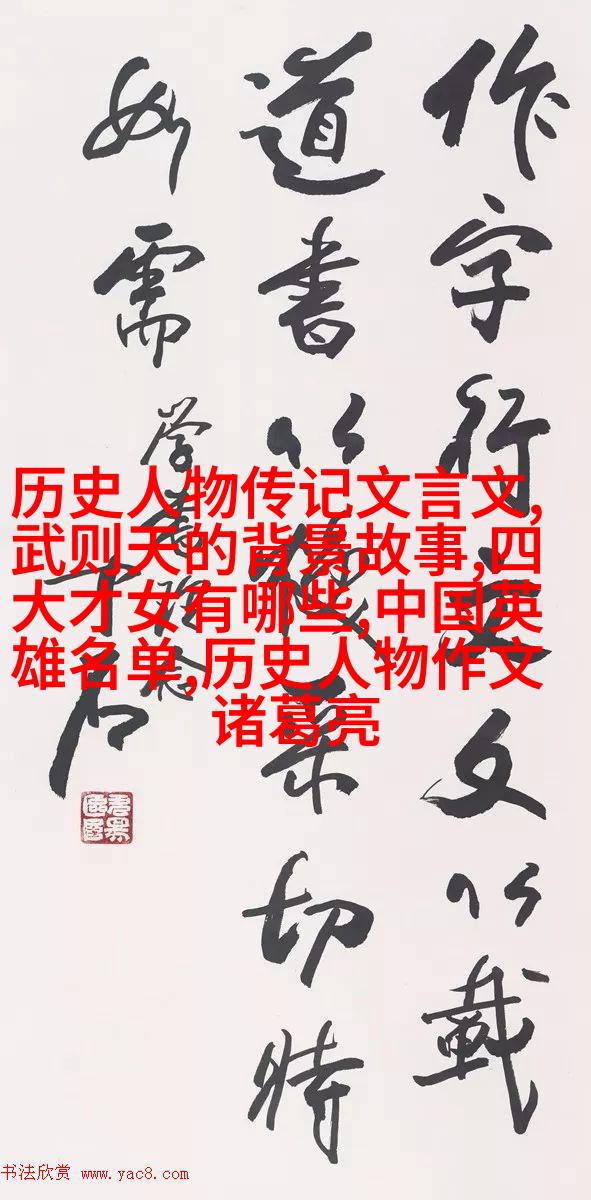 作字行文以載
道書以切時
如需
历史人物传记文言文,
武则天的背景故事,四
大才女有哪些,中国英
雄名单,历史人物作文
诸葛亮
书法欣赏 www.yac8.com